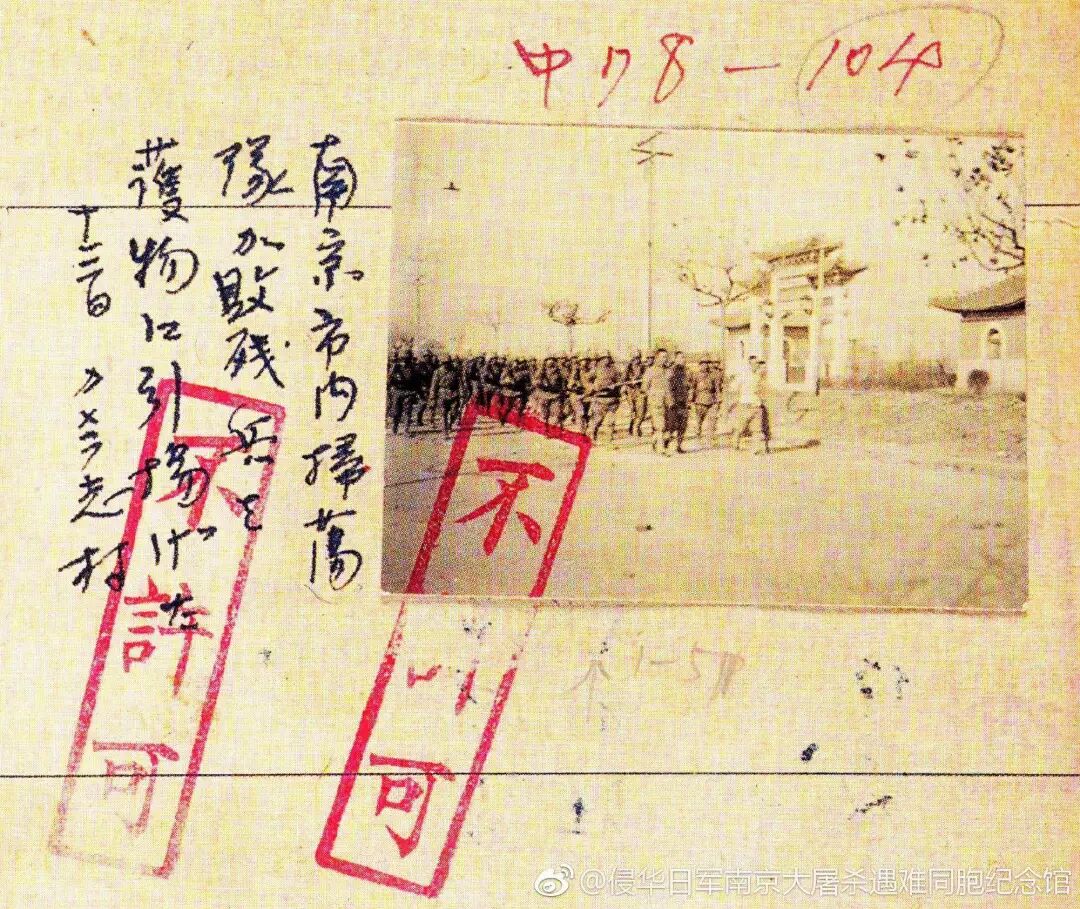 中178-104
南京市内掃蕩
隊が敗残兵を
獲物に引揚げた
志村
不許可
不 可
@侵华日军南京大屠杀遇难同胞纪念馆